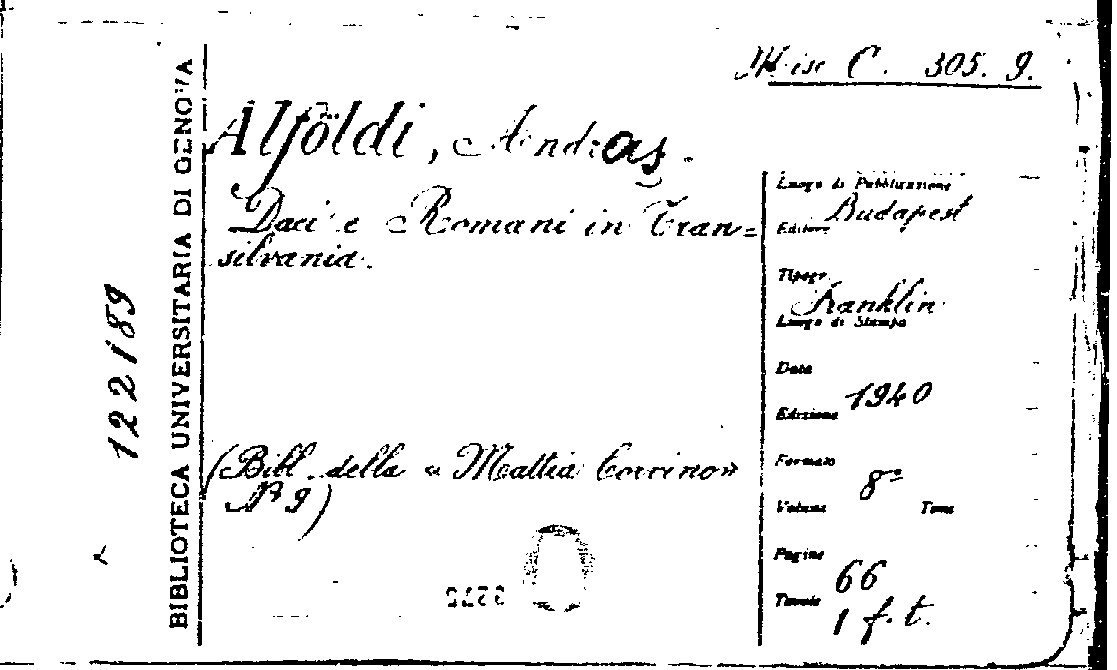 Misc C. 305. 9.
Alföldi, Andras.
Daci e Romani in Tran=
silvania.
(Bibl. della « Mattia Corvino»
Nº 9)
BIBLIOTECA UNIVERSITARIA DI GENOVA
122189
Luogo di Pubblicazione
Budapest
Editore
Tipogr.
Franklin
Luogo di Stampa
Data
1940
Edizione
Formato
8º
Volume Tomo
Pagine
66
Tavole
1 f. t.